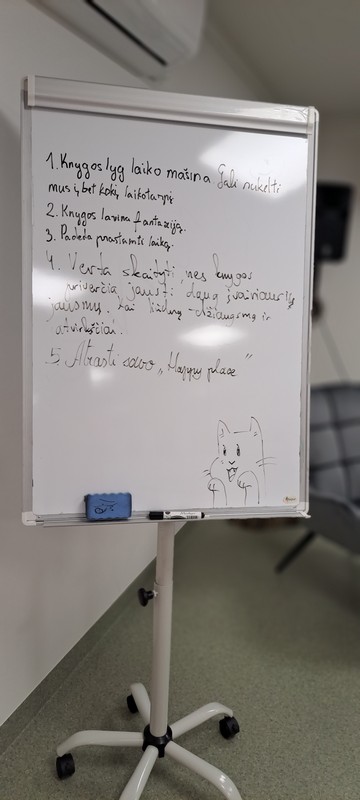 1. Knygos lyg laiko mašina gali nukelti
mus į bet kokį laikotarpį
2. Knygos lavina fantaziją.
3. Padeda prastumti laiką.
4. Verta skaityti, nes knygos
priverčia jausti daug įvairiausių
jausmų, tai liūdną džiaugsmą ir
atvirkščiai.
5. Atrasti savo „Happy place"